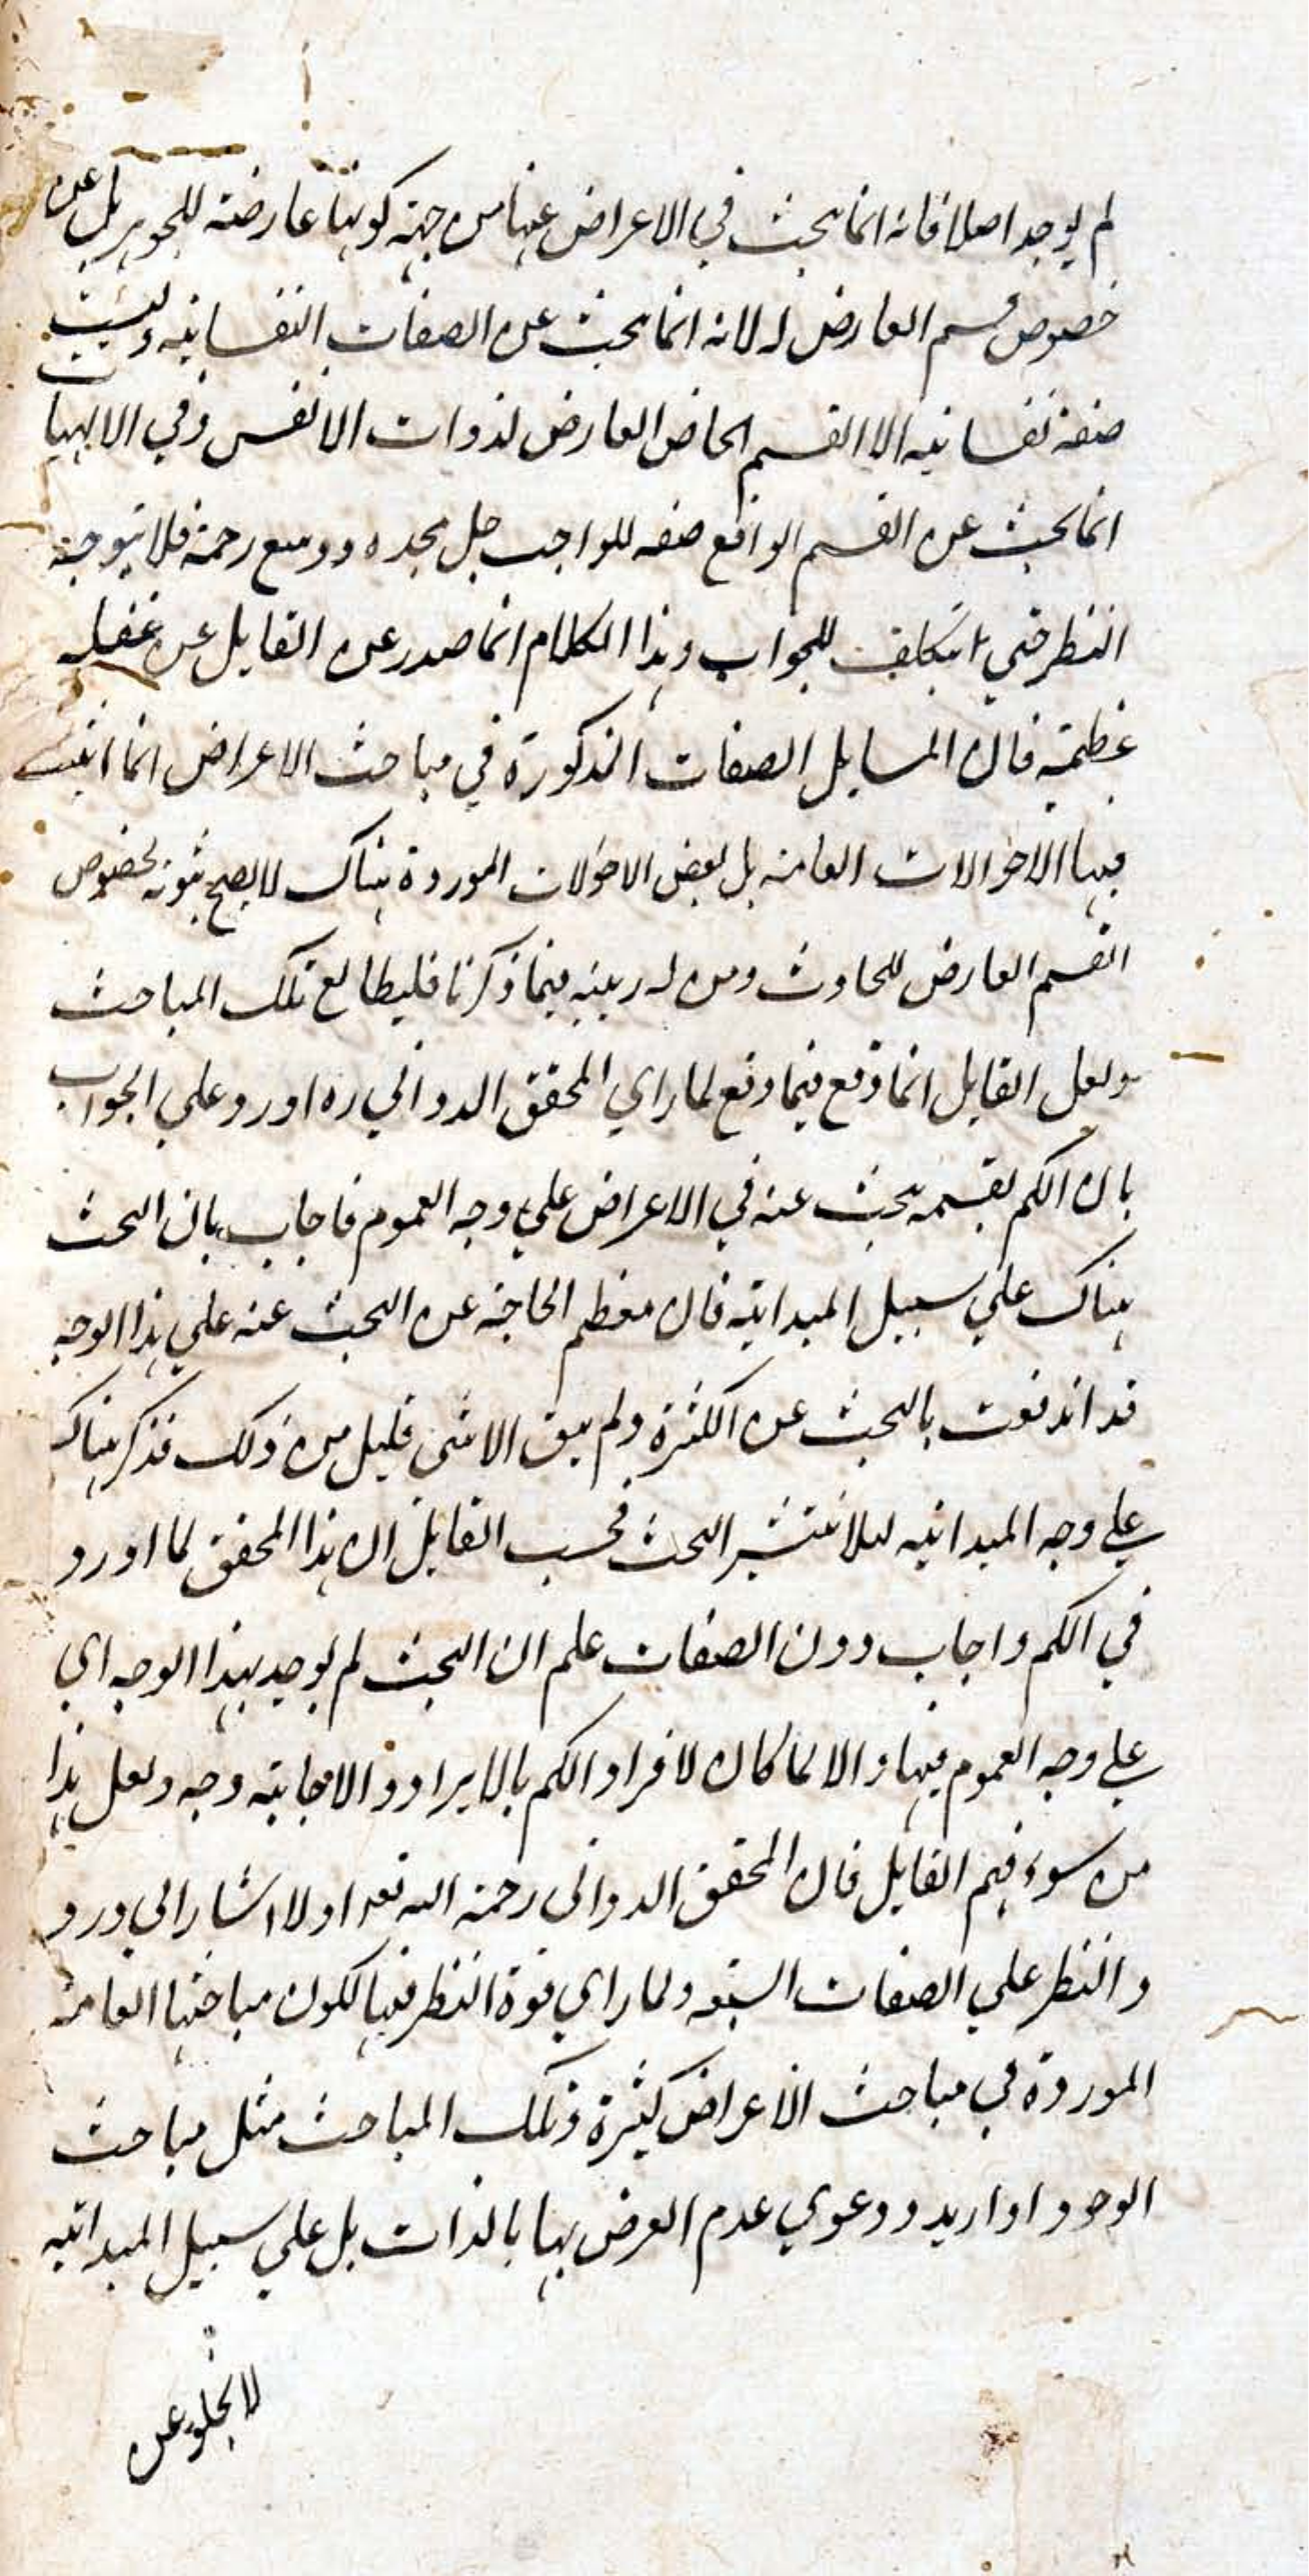 لم يوجد اصلا فانه انما يبحث في الاعراض عنها من جهة كونها عارضة للجوهر بل عن
خصوص قسم العارض له لانه انما يبحث عن الصفات النفسانيه وليست
صفة نفسانيه الا القسم الخاص العارض لذوات الانفس وفي الالهيات
انما يبحث عن القسم الواقع صفه للواجب جل مجده ووسع رحمة فلا يتوجه
النظر حتي يتكلف للجواب وهذا الكلام انما صدر عن القايل عن غفله
عظيمة فان المسايل الصفات المذكورة في مباحث الاعراض انما اثبت
فيها الاحوالات العامه بل بعض الاحولات الموردة هناك لا يصح ثبوته لخصوص
القسم العارض للحادث ومن له ريبة فيما ذكرنا فليطالع تلك المباحث
ولعل القايل انما وقع فيما وقع لما راي المحقق الدواني ره اورد علي الجواب
بان الكم بقسمه يبحث عنه في الاعراض علي وجه العموم فاجاب بان البحث
هناك علي سبيل المبدائيه فان معظم الحاجة عن البحث عنه علي هذا الوجه
قد اندفعت بالبحث عن الكثرة ولم يبق الا شي قليل من ذلك فذكر هناك
علي وجه المبدائيه لئلا ينتشر البحث فحسب القايل ان هذا المحقق لما اورد
في الكم واجاب دون الصفات علم ان البحث لم يوجد بهذا الوجه اي
علي وجه العموم فيها والا لما كان لافراد الكم بالايراد والاجابة وجه ولعل هذا
من سوء فهم القايل فان المحقق الدواني رحمة الله بعد اولا اشار الي ورود
والنظر علي الصفات السبعه ولما راي قوة النظر فيها لكون مباحثها العامة
الموردة في مباحث الاعراض كثيرة وتلك المباحث مثل مباحث
الوجود اذا اريد ودعوي عدم العرض بها بالذات بل علي سبيل المبدائيه
لا يخلو عن